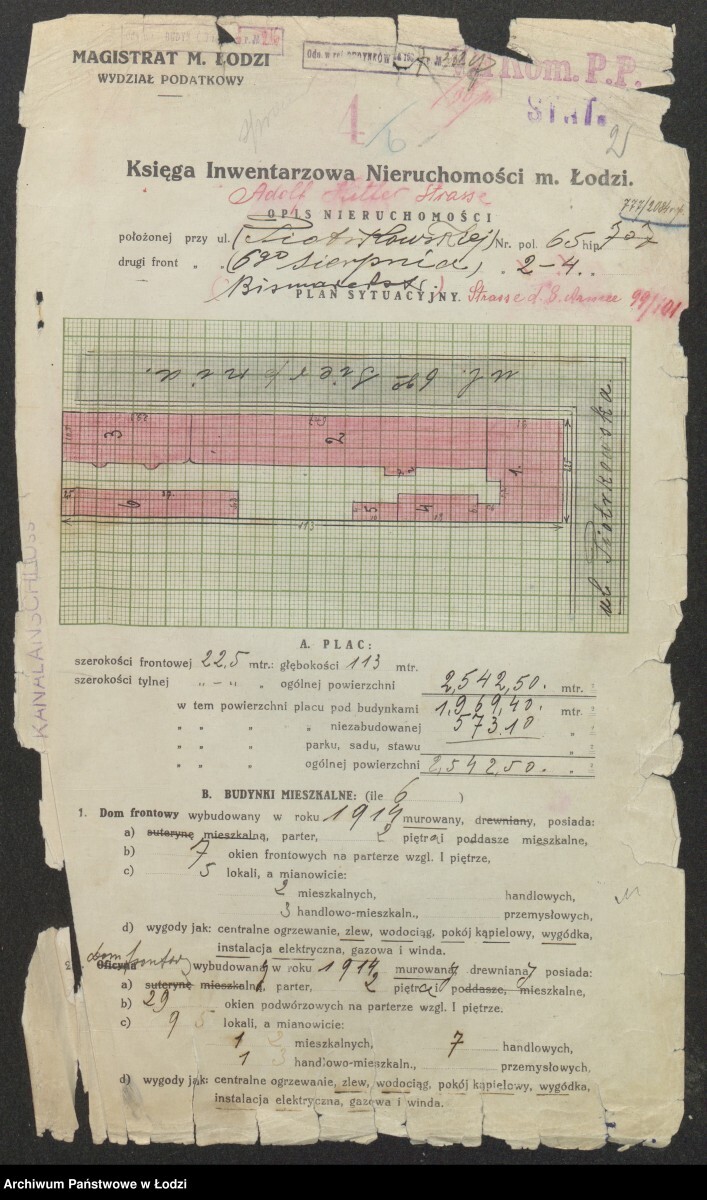 MAGISTRAT M. ŁODZI
WYDZIAŁ PODATKOWY
Kom. P. P.
1/6
2
Księga Inwentarzowa Nieruchomości m. Łodzi.
Adolf Hitler Strasse
777/2084
OPIS NIERUCHOMOŚCI
położonej przy ul. (Piotrkowskiej) Nr. pol. 65 hip. 507
drugi front „ „ (6go Sierpnia) „ 2-4.
(Bismarckstr.)
PLAN SYTUACYJNY. Strasse d. 8. Armee 99/101
ul. 6go Sierpnia.
3
2
1.
6
5
4
113
ul. Piotrkowska
KANALANSCHLUSS
A. PLAC:
szerokości frontowej 22,5 mtr.: głębokości 113 mtr.
szerokości tylnej „ – „ „ ogólnej powierzchni 2,542,50. mtr. ²
w tem powierzchni placu pod budynkami 1,969,40. mtr. ²
„ „ „ „ niezabudowanej 573.10 „ ²
„ „ „ parku, sadu, stawu „ ²
„ „ „ ogólnej powierzchni 2,542,50. „ ²
B. BUDYNKI MIESZKALNE: (ile 6 )
1. Dom frontowy wybudowany w roku 1914 murowany, drewniany, posiada:
a) suterynę mieszkalną, parter, 2 piętra i poddasze mieszkalne,
b) 7 okien frontowych na parterze wzgl. I piętrze,
c) 5 lokali, a mianowicie:
2 mieszkalnych, handlowych,
3 handlowo-mieszkaln., przemysłowych,
d) wygody jak: centralne ogrzewanie, zlew, wodociąg, pokój kąpielowy, wygódka,
instalacja elektryczna, gazowa i winda.
dom frontowy
2. Oficyna wybudowany w roku 1914 murowany drewniany posiada:
a) suterynę mieszkalną, parter, 2 piętra i poddasze, mieszkalne,
b) 29 okien podwórzowych na parterze wzgl. I piętrze.
c) 9 5 lokali, a mianowicie:
1 2 mieszkalnych, 7 handlowych,
1 3 handlowo-mieszkaln., przemysłowych,
d) wygody jak: centralne ogrzewanie, zlew, wodociąg, pokój kąpielowy, wygódka,
instalacja elektryczna, gazowa i winda.
Archiwum Państwowe w Łodzi